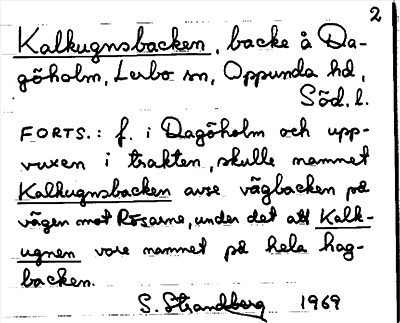 2
Kalkugnsbacken, backe å Da-
göholm, Lerbo sn, Oppunda hd,
Söd. l.
FORTS.: f. i Dagöholm och upp-
vuxen i trakten, skulle namnet
Kalkugnsbacken avse vägbacken på
vägen mot Rosarne, under det att Kalk-
ugnen vore namnet på hela hag-
backen.
S. Strandberg 1969